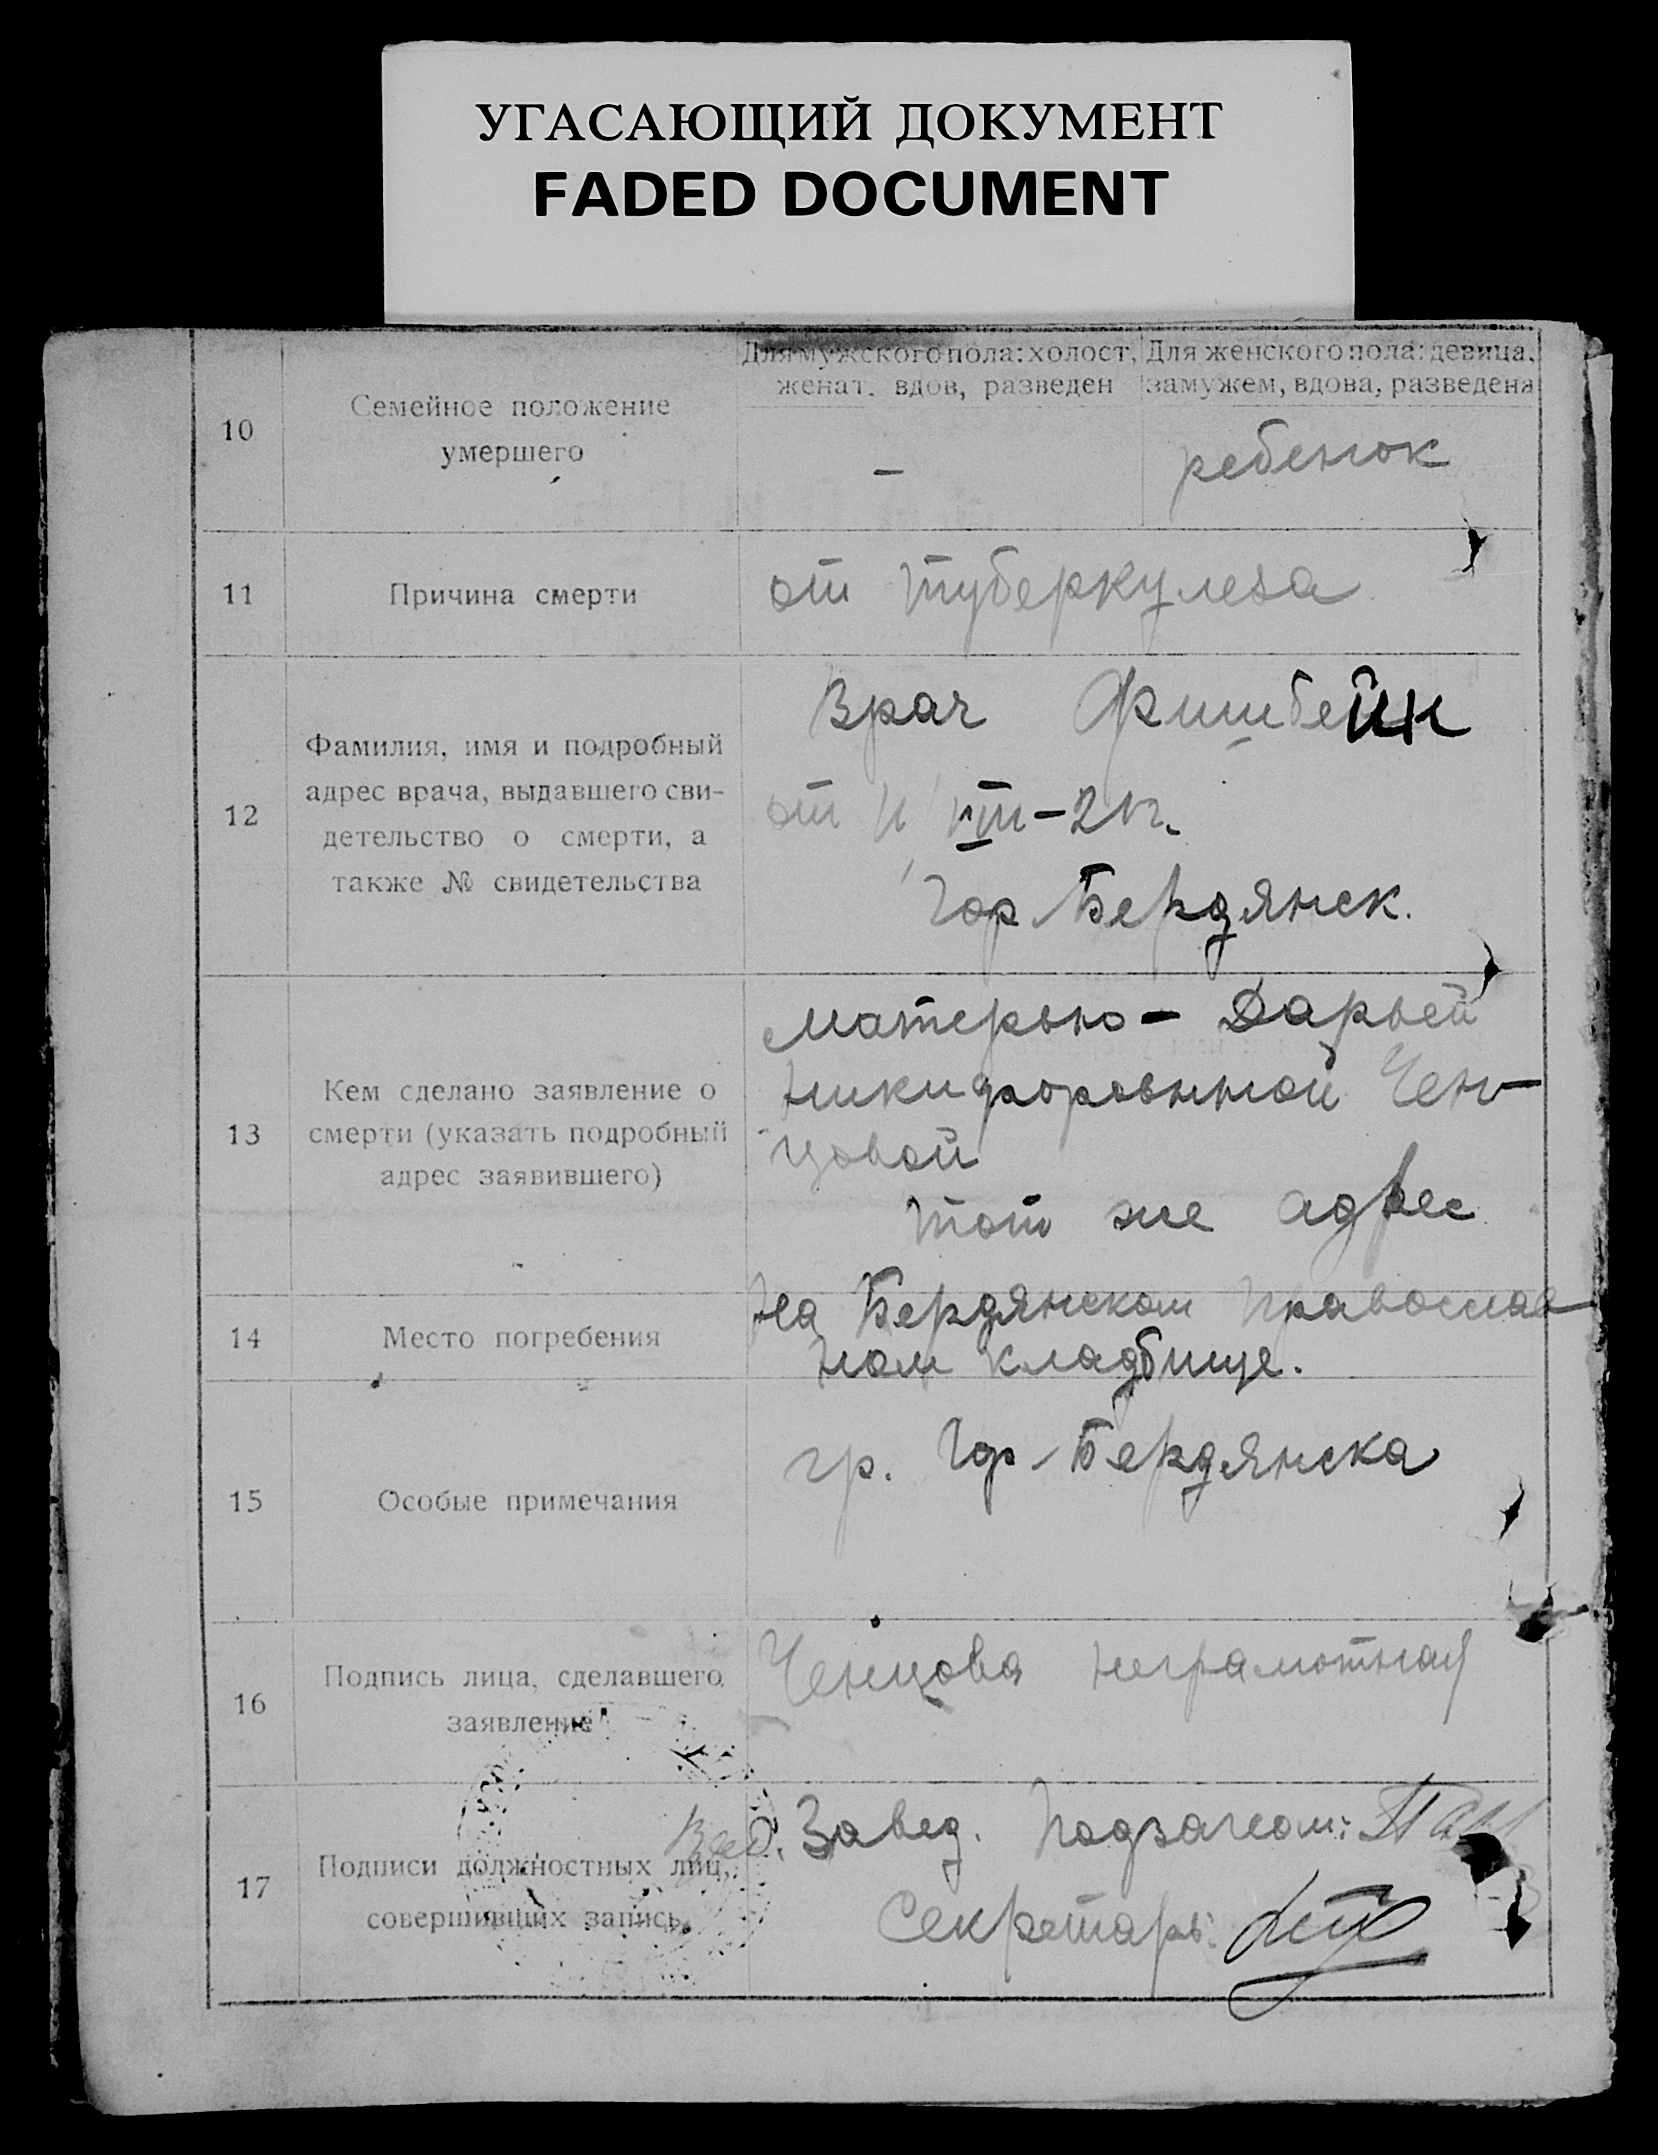 УГАСАЮЩИЙ ДОКУМЕНТ
FADED DOCUMENT
Для мужского пола: холост, женат, вдов, разведен
Для женского пола: девица, замужем, вдова, разведена
10
Семейное положение
умершего
—
ребенок
11
Причина смерти
от туберкулеза
12
Фамилия, имя и подробный
адрес врача, выдавшего сви-
детельство о смерти, а
также № свидетельства
Врач Фишбейн
от VIII-21г.
Гор Бердянск.
13
Кем сделано заявление о
смерти (указать подробный
адрес заявившего)
Матерью — Дарьей
Никифоровиной Чен-
цовой
тот же адрес
14
Место погребения
На Бердянском Православ
ном кладбище.
15
Особые примечания
гр. Гор. Бердянска
16
Подпись лица, сделавшего
заявление
Ченцова неграмотная
17
Подписи должностных лиц,
совершивших запись.
Завед. Подзагсом:
Секретарь: